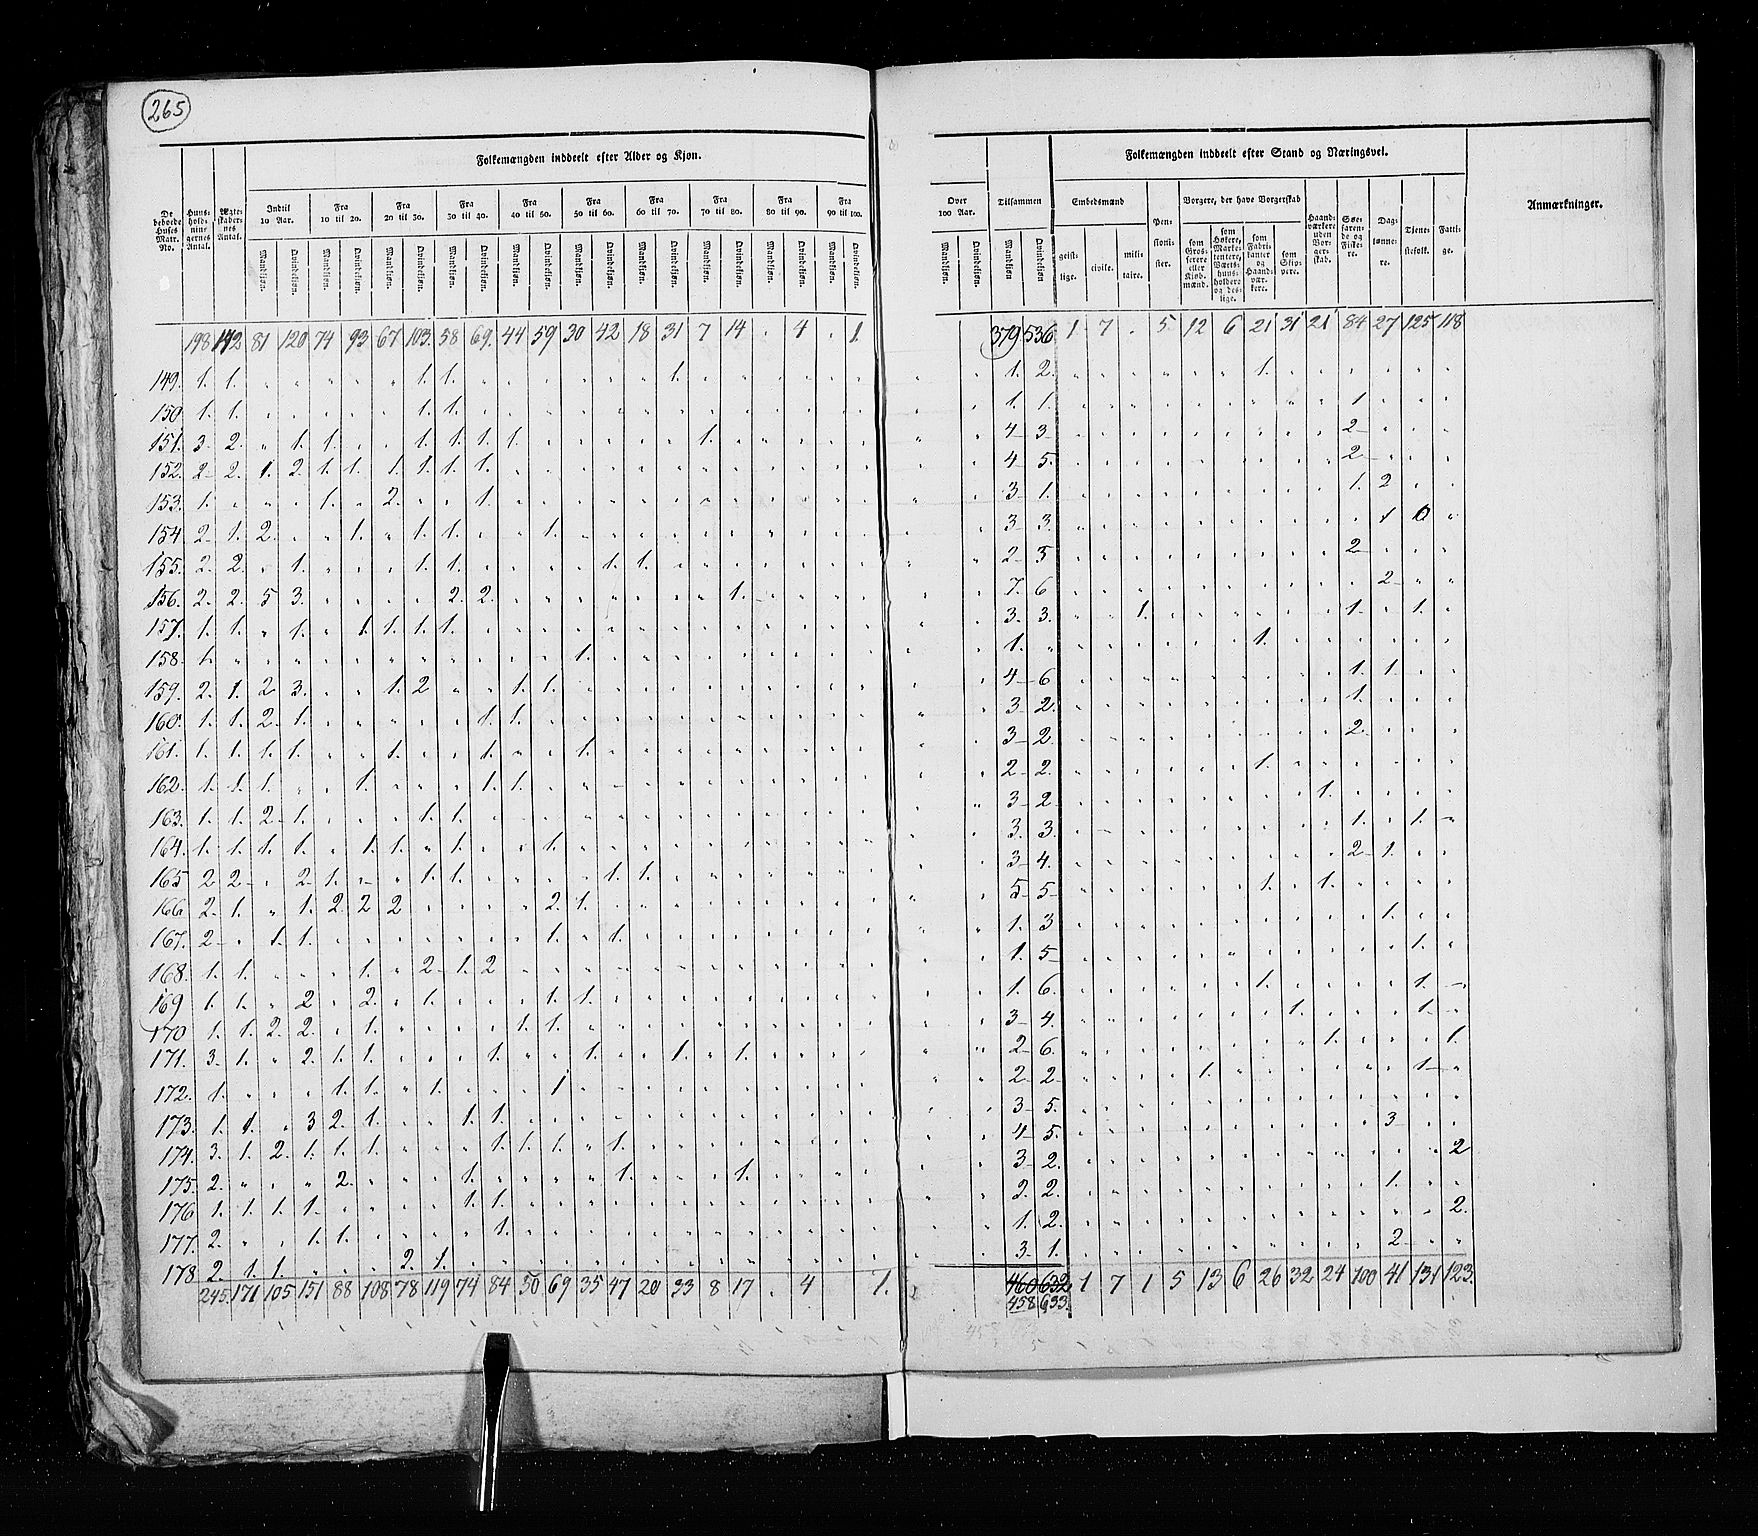 265
Folkemængden inddeelt efter Alder og Kjøn.
De beboede Huses Matr. No.
Huusholdningernes Antal.
Ægteskabernes Antal.
Indtil 10 Aar.
Fra 10 til 20.
Fra 20 til 30.
Fra 30 til 40.
Fra 40 til 50.
Fra 50 til 60.
Fra 60 til 70.
Fra 70 til 80.
Fra 80 til 90.
Fra 90 til 100.
Mandkjøn. Qvindekjøn. Mandkjøn. Qvindekjøn. Mandkjøn. Qvindekjøn. Mandkjøn. Qvindekjøn. Mandkjøn. Qvindekjøn. Mandkjøn. Qvindekjøn. Mandkjøn. Qvindekjøn. Mandkjøn. Qvindekjøn. Mandkjøn. Qvindekjøn. Mandkjøn. Qvindekjøn.
198 142 81 120 74 93 67 103. 58 69. 44 59 30 42 18 31 7 14 . 4 . 1.
149. 1. 1. 1. 1. 1.
150. 1. 1. 1. 1.
151. 3. 2. 1. 1. 1. 1. 1. 1. 1.
152. 2 2. 1. 2. 1. 1. 1. 1. 1. 1.
153. 1. 1. 2. 1.
154. 2. 1. 2. 1. 1. 1. 1.
155. 2. 2. 1. 1. 1. 1. 1.
156. 2. 2. 5 3. 2. 2. 1.
157. 1. 1. 1. 1. 1. 1. 1.
158. 1. 1.
159. 2. 1. 2 3. 1. 2 1. 1.
160. 1. 1. 2. 1. 1. 1.
161. 1. 1. 1. 1. 1. 1. 1.
162. 1. 1. 1. 1. 1. 1.
163. 1. 1. 2. 1. 1. 1.
164. 1. 1. 1. 1. 1. 1. 1. 1.
165 2 2 2. 1. 1. 1. 1. 1.
166 2. 1. 1. 2. 2 2 2. 1.
167. 2 1. 1. 1. 1.
168. 1. 1. 1. 2 1. 2
169 1. 1. 2 2. 1. 1. 1.
170 1. 1. 2. 2. 1. 1. 1.
171. 3. 1. 2. 1. 1. 1. 1. 1. 1.
172. 1. 1. 1. 1. 1
173. 1. 1. 3 2. 1. 1. 1.
174. 3. 1. 2. 1. 1. 1. 1. 1. 1. 1.
175. 2. 2. 1. 1. 1.
176 1. 1. 1. 1. 1. 1.
177. 2. 1. 1. 1.
178 2. 1. 1. 2. 1.
245. 171 105 151 88 108 78 119 74 84 50 69 35 47 20 33 8 17 . 4 1.
Over 100 Aar.
Tilsammen
Folkemængden inddeelt efter Stand og Næringsvei.
Anmærkninger.
Mandkjøn. Qvindekjøn. Mandkjøn Qvindekjøn
Embedsmænd
geistlige. civile. militaire.
Pensionister.
Borgere, der have Borgerskab
som Grosserere eller Kjøbmænd.
som Høkere, Marketentere, Værtshuusholdere og deslige.
som Fabrikanter og Haandværkere.
som Skippere.
Haandværkere uden Borgerskab.
Søefarende og Fiskere.
Daglønnere.
Tjenestefolk.
Fattige.
379 536 1 7 . 5 12 6 21 31 21 84 27 125 118
1. 2. 1.
1. 1. 1
4 3 2
4 5. 2
3 1. 1. 2
3 3. 1 0
2 3 2
7. 6 2
3. 3. 1. 1. 1.
1. 1.
4 6 1. 1.
3 2. 1.
3 2. 2.
2 2. 1.
3 2 1.
3. 3. 1. 1.
3 4. 2 1.
5 5 1. 1.
1. 3 1.
1. 5 1.
1. 6. 1. 1.
3 4. 1. 1.
2 6. 1. 1.
2 2. 1. 1
3 5.
4 5. 3
3 2. 2
2. 2. 1.
1. 2. 2.
3. 1. 2
460 632 1 7 1 5 13 6 26 32 24 100 41 131 123.
458 633.